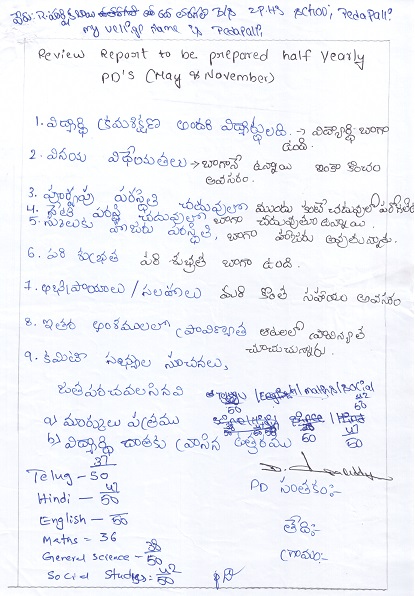 పేరు: R. 8వ తరగతి B/s Z.P.H.S SCHOOL, Pedapalli
my village name is Pedapalli
Review Report to be prepared half Yearly
PD'S (May & November)
1. విద్యార్థి క్రమశిక్షణ అందరి విద్యార్థులది. → విద్యార్థి బాగా ఉంది.
2. వినయ విధేయతలు → బాగానే ఉన్నాయి ఇంకా కొంచం అవసరం.
3. పూర్వపు పరిస్థితి చదువులో ముందు కంటే చదువులో
4. ప్రస్తుత పరిస్థితి చదువులో బాగా చదువుతూ ఉన్నాయి.
5. స్కూలుకు హాజరు పరిస్థితి, బాగా హాజరు అవుతున్నాడు.
6. పరి శుభ్రత పరి శుభ్రత బాగా ఉంది.
7. అభిప్రాయాలు / సలహాలు మరి కొంత సహాయం అవసరం
8. ఇతర అంశములలో ప్రావీణ్యత ఆటలలో ప్రావీణ్యత చూచుచున్నారు.
9. కమిటీ సభ్యుల సూచనలు,
జతపరచవలసినవి Telugu / English / maths / Social
a) మార్కులు పత్రము
b) విద్యార్థి చేతకు వ్రాసిన ఉత్తరము
Telug - 37/50
Hindi - 47/50
English - /50
Maths = 36
General Science - 38/50
Social Studies: 42/50
PD సంతకం:-
తేది:-
గ్రామం:-